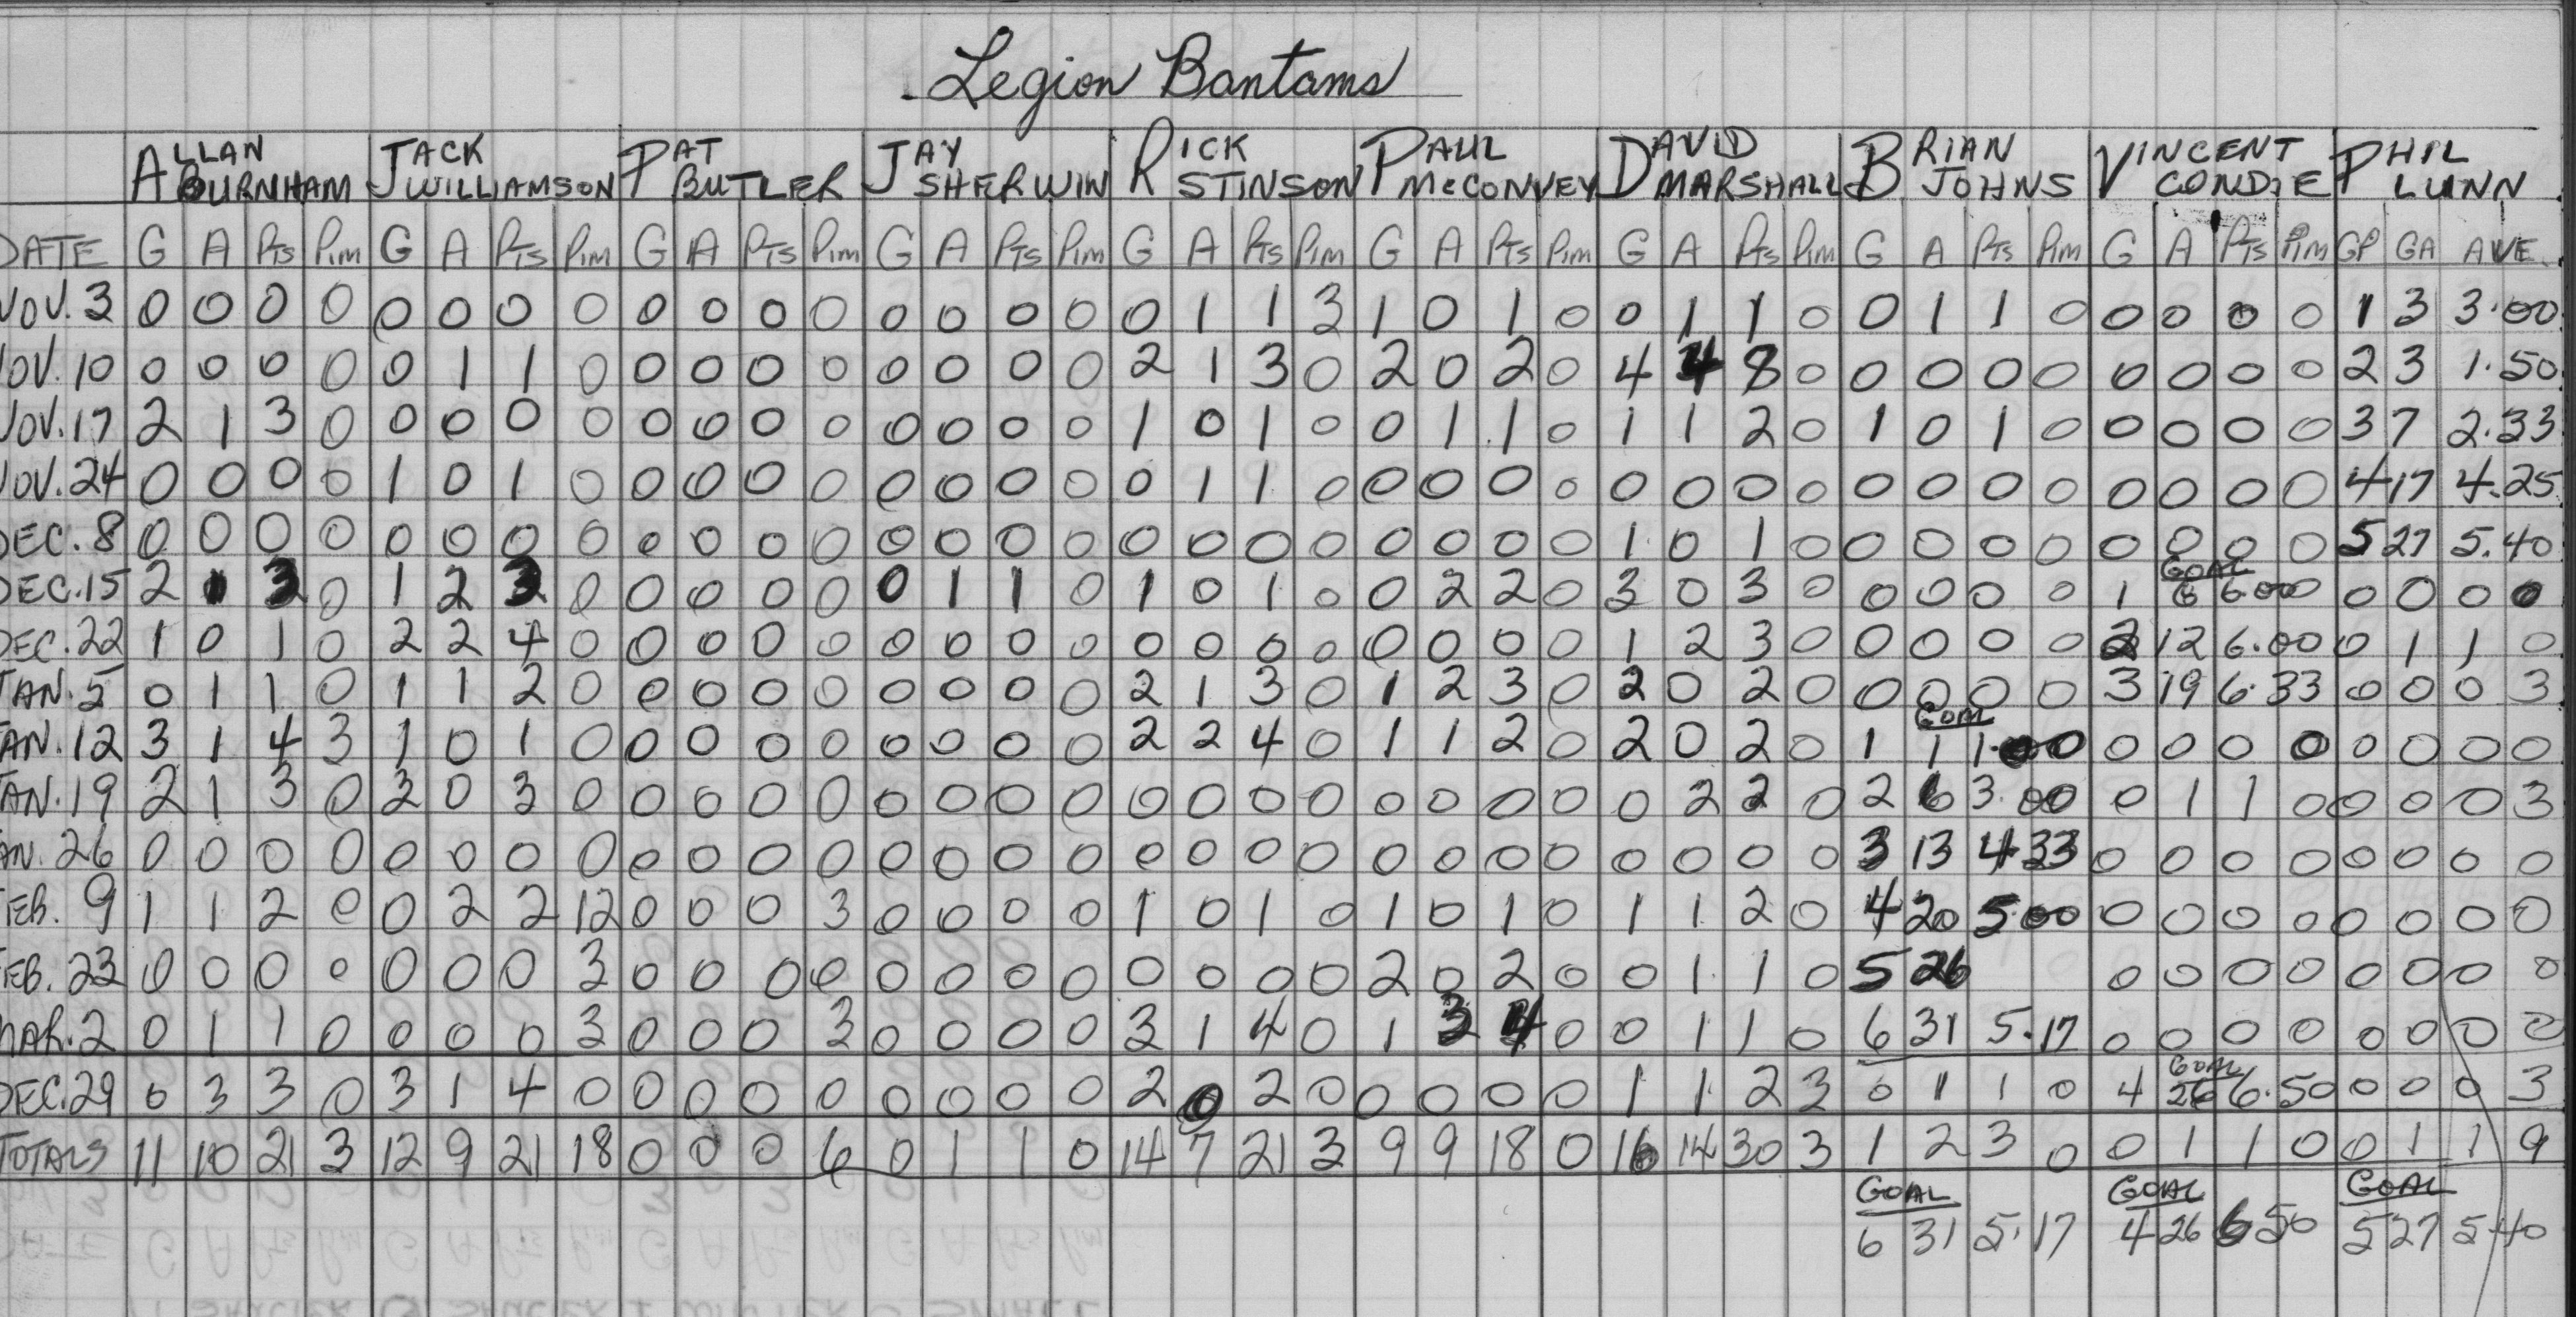 Legion Bantams
ALLAN BURNHAM JACK WILLIAMSON PAT BUTLER JAY SHERWIN RICK STINSON PAUL McCONVEY DAVID MARSHALL BRIAN JOHNS VINCENT CONDIE PHIL LUNN
DATE G A PTS PIM G A PTS PIM G A PTS PIM G A PTS PIM G A PTS PIM G A PTS PIM G A PTS PIM G A PTS PIM G A PTS PIM GP GA AVE.
NOV. 3 0 0 0 0 0 0 0 0 0 0 0 0 0 0 0 0 0 1 1 3 1 0 1 0 0 1 1 0 0 1 1 0 0 0 0 0 1 3 3.00
NOV. 10 0 0 0 0 0 1 1 0 0 0 0 0 0 0 0 0 2 1 3 0 2 0 2 0 4 4 8 0 0 0 0 0 0 0 0 0 2 3 1.50
NOV. 17 2 1 3 0 0 0 0 0 0 0 0 0 0 0 0 0 1 0 1 0 0 1 1 0 1 1 2 0 1 0 1 0 0 0 0 0 3 7 2.33
NOV. 24 0 0 0 0 1 0 1 0 0 0 0 0 0 0 0 0 0 1 1 0 0 0 0 0 0 0 0 0 0 0 0 0 0 0 0 0 4 17 4.25
DEC. 8 0 0 0 0 0 0 0 0 0 0 0 0 0 0 0 0 0 0 0 0 0 0 0 0 1 0 1 0 0 0 0 0 0 0 0 0 5 27 5.40
DEC. 15 2 1 3 0 1 2 3 0 0 0 0 0 0 1 1 0 1 0 1 0 0 2 2 0 3 0 3 0 0 0 0 0 1 GOAL 6 6.00 0 0 0 0
DEC. 22 1 0 1 0 2 2 4 0 0 0 0 0 0 0 0 0 0 0 0 0 0 0 0 0 1 2 3 0 0 0 0 0 2 12 6.00 0 1 1 0
JAN. 5 0 1 1 0 1 1 2 0 0 0 0 0 0 0 0 0 2 1 3 0 1 2 3 0 2 0 2 0 0 0 0 0 3 19 6.33 0 0 0 3
JAN. 12 3 1 4 3 1 0 1 0 0 0 0 0 0 0 0 0 2 2 4 0 1 1 2 0 2 0 2 0 1 GOAL 1 1.00 0 0 0 0 0 0 0 0
JAN. 19 2 1 3 0 3 0 3 0 0 0 0 0 0 0 0 0 0 0 0 0 0 0 0 0 0 2 2 0 2 6 3.00 0 1 1 0 0 0 0 3
JAN. 26 0 0 0 0 0 0 0 0 0 0 0 0 0 0 0 0 0 0 0 0 0 0 0 0 0 0 0 0 3 13 4.33 0 0 0 0 0 0 0 0
FEB. 9 1 1 2 0 0 2 2 12 0 0 0 3 0 0 0 0 1 0 1 0 1 0 1 0 1 1 2 0 4 20 5.00 0 0 0 0 0 0 0 0
FEB. 23 0 0 0 0 0 0 0 3 0 0 0 0 0 0 0 0 0 0 0 0 2 0 2 0 0 1 1 0 5 26 0 0 0 0 0 0 0 0
MAR. 2 0 1 1 0 0 0 0 3 0 0 0 3 0 0 0 0 3 1 4 0 1 3 4 0 0 1 1 0 6 31 5.17 0 0 0 0 0 0 0 0
DEC. 29 0 3 3 0 3 1 4 0 0 0 0 0 0 0 0 0 2 0 2 0 0 0 0 0 1 1 2 3 0 1 1 0 4 GOAL 26 6.50 0 0 0 3
TOTALS 11 10 21 3 12 9 21 18 0 0 0 6 0 1 1 0 14 7 21 3 9 9 18 0 16 14 30 3 1 2 3 0 0 1 1 0 0 1 1 9
GOAL GOAL GOAL
6 31 5.17 4 26 6 50 5 27 5.40